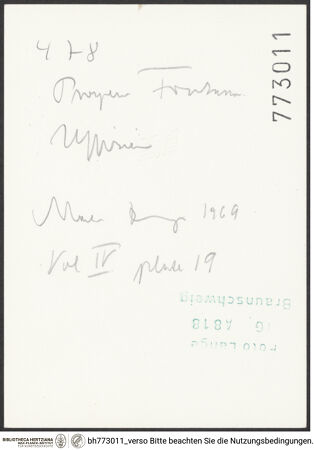 478
773011
Prospero Fontana
1969
Vol IV plate 19
Foto Lange
16. A818
Braunschweig
BIBLIOTHECA HERTZIANA
MAX-PLANCK-INSTITUT
FÜR KUNSTGESCHICHTE
bh773011_verso Bitte beachten Sie die Nutzungsbedingungen.